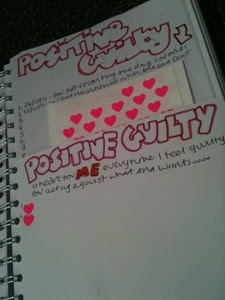 POSITIVE
GUILTY
1. 25/01/11 - for not recording the day calories
2.
3
4
5
6
7
POSITIVE GUILTY
a heart for ME everytime I feel guilty
for acting against what Ana wants